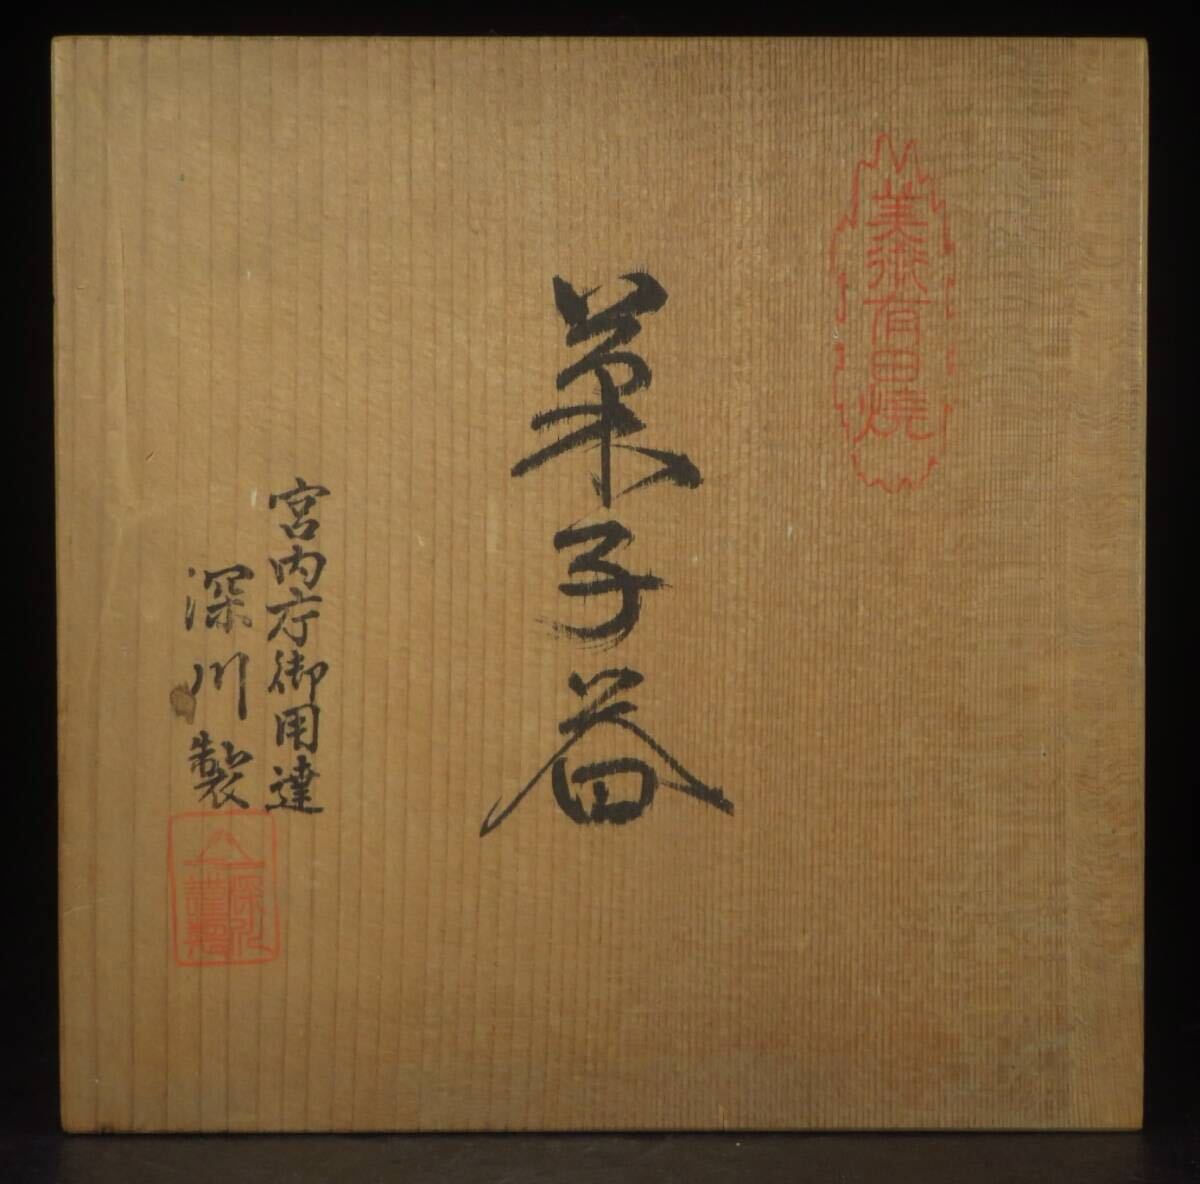 美術有田燒
菓子器
宮内庁御用達
深川製
深川
謹製